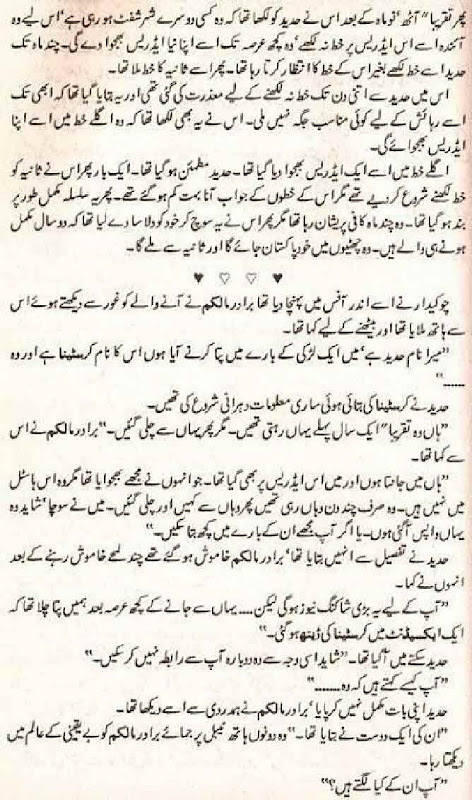 پھر تقریباً "آٹھ' نو ماہ کے بعد اس نے حدید کو لکھا تھا کہ وہ کسی دوسرے شہر شفٹ ہو رہی ہے' اس لیے وہ
آئندہ اسے اس ایڈریس پر خط نہ لکھے' وہ کچھ عرصہ تک اسے اپنا نیا ایڈریس بھجوا دے گی۔ چند ماہ تک
حدید اسے خط لکھے بغیر اس کے خط کا انتظار کرتا رہا تھا۔ پھر اسے ثانیہ کا خط ملا تھا۔
اس میں حدید سے اتنی دن تک خط نہ لکھنے کے لیے معذرت کی گئی تھی اور یہ بتایا گیا تھا کہ ابھی تک
اسے رہائش کے لیے کوئی مناسب جگہ نہیں ملی۔ اس نے یہ بھی لکھا تھا کہ وہ اگلے خط میں اسے اپنا
ایڈریس بھجوائے گی۔
اگلے خط میں اسے ایک ایڈریس بھجوا دیا گیا تھا۔ حدید مطمئن ہو گیا تھا۔ ایک بار پھر اس نے ثانیہ کو
خط لکھنے شروع کر دیے تھے مگر اس کے خطوں کے جواب آنا بہت کم ہو گئے تھے۔ پھر یہ سلسلہ مکمل طور پر
بند ہو گیا تھا۔ وہ چند ماہ کافی پریشان رہا تھا مگر پھر اس نے یہ سوچ کر خود کو دلاسا دے لیا تھا کہ دو سال مکمل
ہونے ہی والے ہیں۔ وہ چھٹیوں میں خود پاکستان جائے گا اور ثانیہ سے ملے گا۔
♥ ♡ ♡ ♥
چوکیدار نے اسے اندر آفس میں پہنچا دیا تھا برادر مالکم نے آنے والے کو غور سے دیکھتے ہوئے اس
سے ہاتھ ملایا تھا اور بیٹھنے کے لیے کہا تھا۔
"میرا نام حدید ہے' میں ایک لڑکی کے بارے میں پتا کرنے آیا ہوں اس کا نام کرسٹینا ہے اور وہ
......"
حدید نے کرسٹینا کی بتائی ہوئی ساری معلومات دہرانی شروع کی تھیں۔
"ہاں وہ تقریباً" ایک سال پہلے یہاں رہتی تھیں۔ مگر پھر یہاں سے چلی گئیں۔" برادر مالکم نے اس
سے کہا تھا۔
"ہاں میں جانتا ہوں اور میں اس ایڈریس پر بھی گیا تھا۔ جو انہوں نے مجھے بھجوایا تھا مگر وہ اس ہاسٹل
میں نہیں ہیں۔ وہ صرف چند دن وہاں رہی تھیں پھر وہاں سے کہیں اور چلی گئیں۔ میں نے سوچا' شاید وہ
یہاں واپس آ گئی ہوں۔ یا اگر آپ مجھے ان کے بارے میں کچھ بتا سکیں۔"
حدید نے تفصیل سے انہیں بتایا تھا' برادر مالکم خاموش ہو گئے تھے چند لمحے خاموش رہنے کے بعد
انہوں نے کہا۔
"آپ کے لیے یہ بڑی شاکنگ نیوز ہو گی لیکن.... یہاں سے جانے کے کچھ عرصہ بعد ہمیں پتا چلا تھا کہ
ایک ایکسیڈنٹ میں کرسٹینا کی ڈیتھ ہو گئی۔"
حدید سکتے میں آ گیا تھا۔ "شاید اسی وجہ سے وہ دوبارہ آپ سے رابطہ نہیں کر سکیں۔"
"آپ کیسے کہتے ہیں کہ وہ........"
حدید اپنی بات مکمل نہیں کر پایا' برادر مالکم نے ہمدردی سے اسے دیکھا تھا۔
"ان کی ایک دوست نے بتایا تھا۔" وہ دونوں ہاتھ ٹیبل پر جمائے برادر مالکم کو بے یقینی کے عالم میں
دیکھتا رہا۔
"آپ ان کے کیا لگتے ہیں؟"